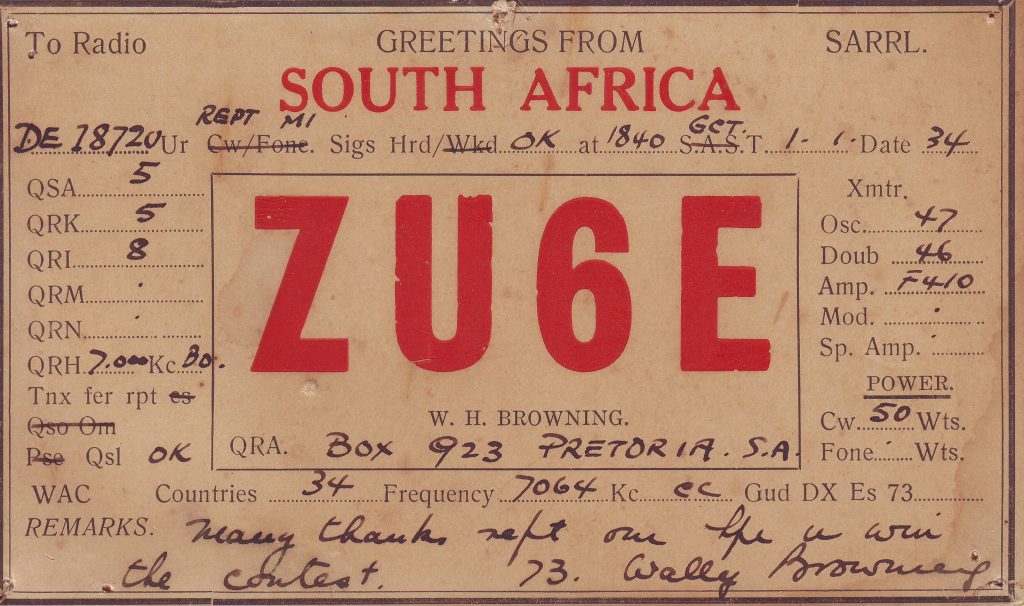 To Radio GREETINGS FROM SARRL.
SOUTH AFRICA
REPT MI GCT.
DE 18720 Ur Cw/Fone. Sigs Hrd/Wkd OK at 1840 S.A.S.T. 1 - 1. Date 34
QSA 5
QRK 5
QRI 8
QRM
QRN
QRH 7.0 Kc Bd.
Tnx fer rpt es
Qso Om
Pse Qsl OK
ZU6E
W. H. BROWNING.
QRA. BOX 923 PRETORIA. S.A.
Xmtr.
Osc. 47
Doub 46
Amp. F410
Mod.
Sp. Amp.
POWER.
Cw. 50 Wts.
Fone Wts.
WAC Countries 34 Frequency 7064 Kc cc Gud DX Es 73
REMARKS. Many thanks rept om hpe u win
the contest. 73. Wally Browning